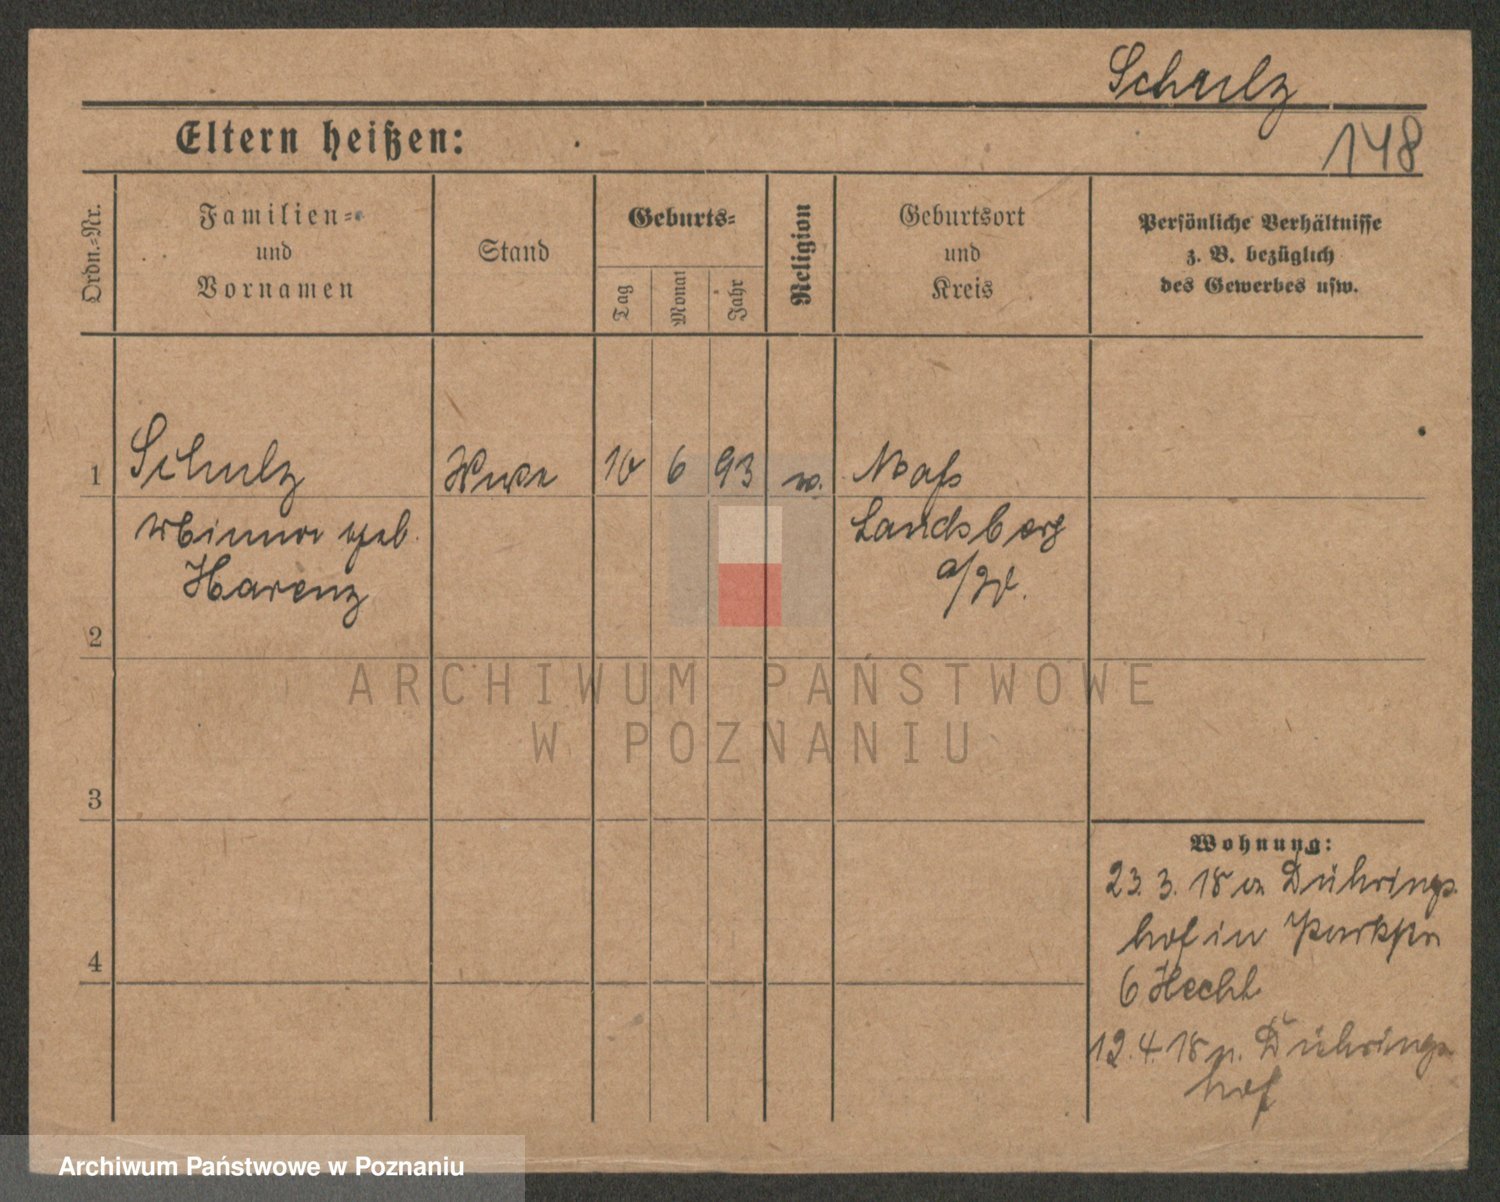 Schulz
Eltern heißen:
148
Ordn.=Nr.
Familien=
und
Vornamen
Stand
Geburts=
Tag
Monat
Jahr
Religion
Geburtsort
und
Kreis
Persönliche Verhältnisse
z. B. bezüglich
des Gewerbes usw.
1
Schulz
Wwe
10 6 93
Landsberg
a/W.
geb.
Harenz
2
3
4
Wohnung:
23. 3. 18 Dührings
hof in
6 Hecht
12. 4. 18 n. Dührings
hof
ARCHIWUM PAŃSTWOWE
W POZNANIU
Archiwum Państwowe w Poznaniu